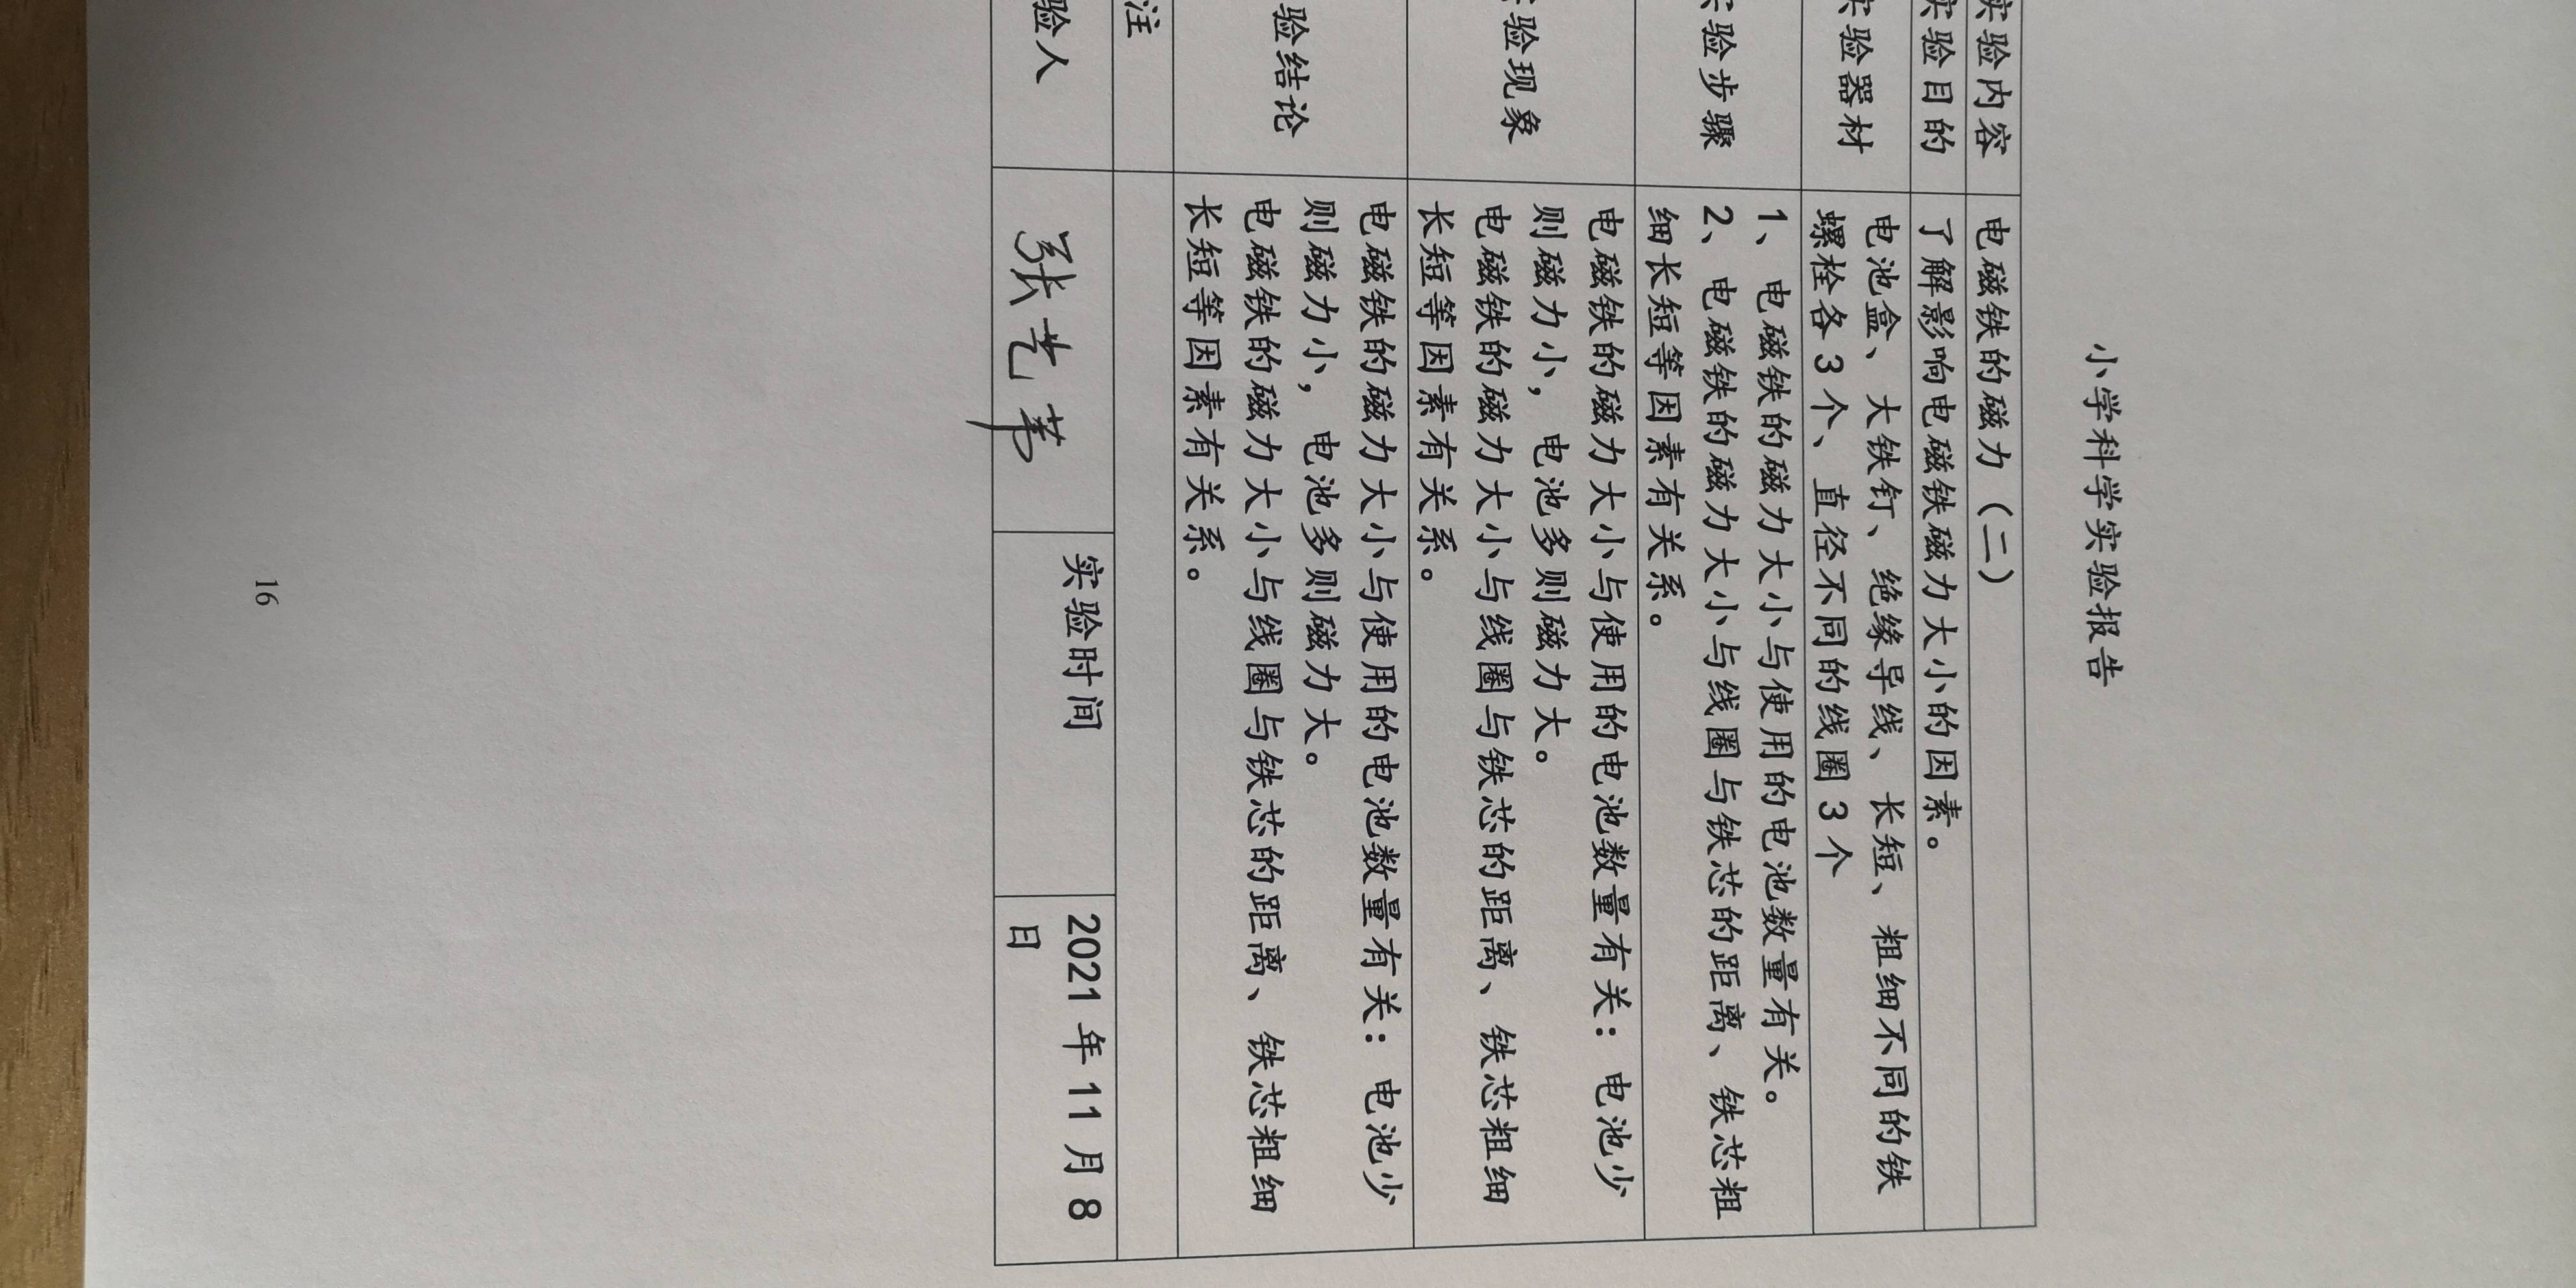 小学科学实验报告
实验内容 电磁铁的磁力（二）
实验目的 了解影响电磁铁磁力大小的因素。
实验器材 电池盒、大铁钉、绝缘导线、长短、粗细不同的铁
螺栓各3个、直径不同的线圈3个
实验步骤 1、电磁铁的磁力大小与使用的电池数量有关。
2、电磁铁的磁力大小与线圈与铁芯的距离、铁芯粗
细长短等因素有关系。
验现象 电磁铁的磁力大小与使用的电池数量有关：电池少
则磁力小，电池多则磁力大。
电磁铁的磁力大小与线圈与铁芯的距离、铁芯粗细
长短等因素有关系。
验结论 电磁铁的磁力大小与使用的电池数量有关：电池少
则磁力小，电池多则磁力大。
电磁铁的磁力大小与线圈与铁芯的距离、铁芯粗细
长短等因素有关系。
注
验人 张艺 实验时间 2021年11月8
日
16